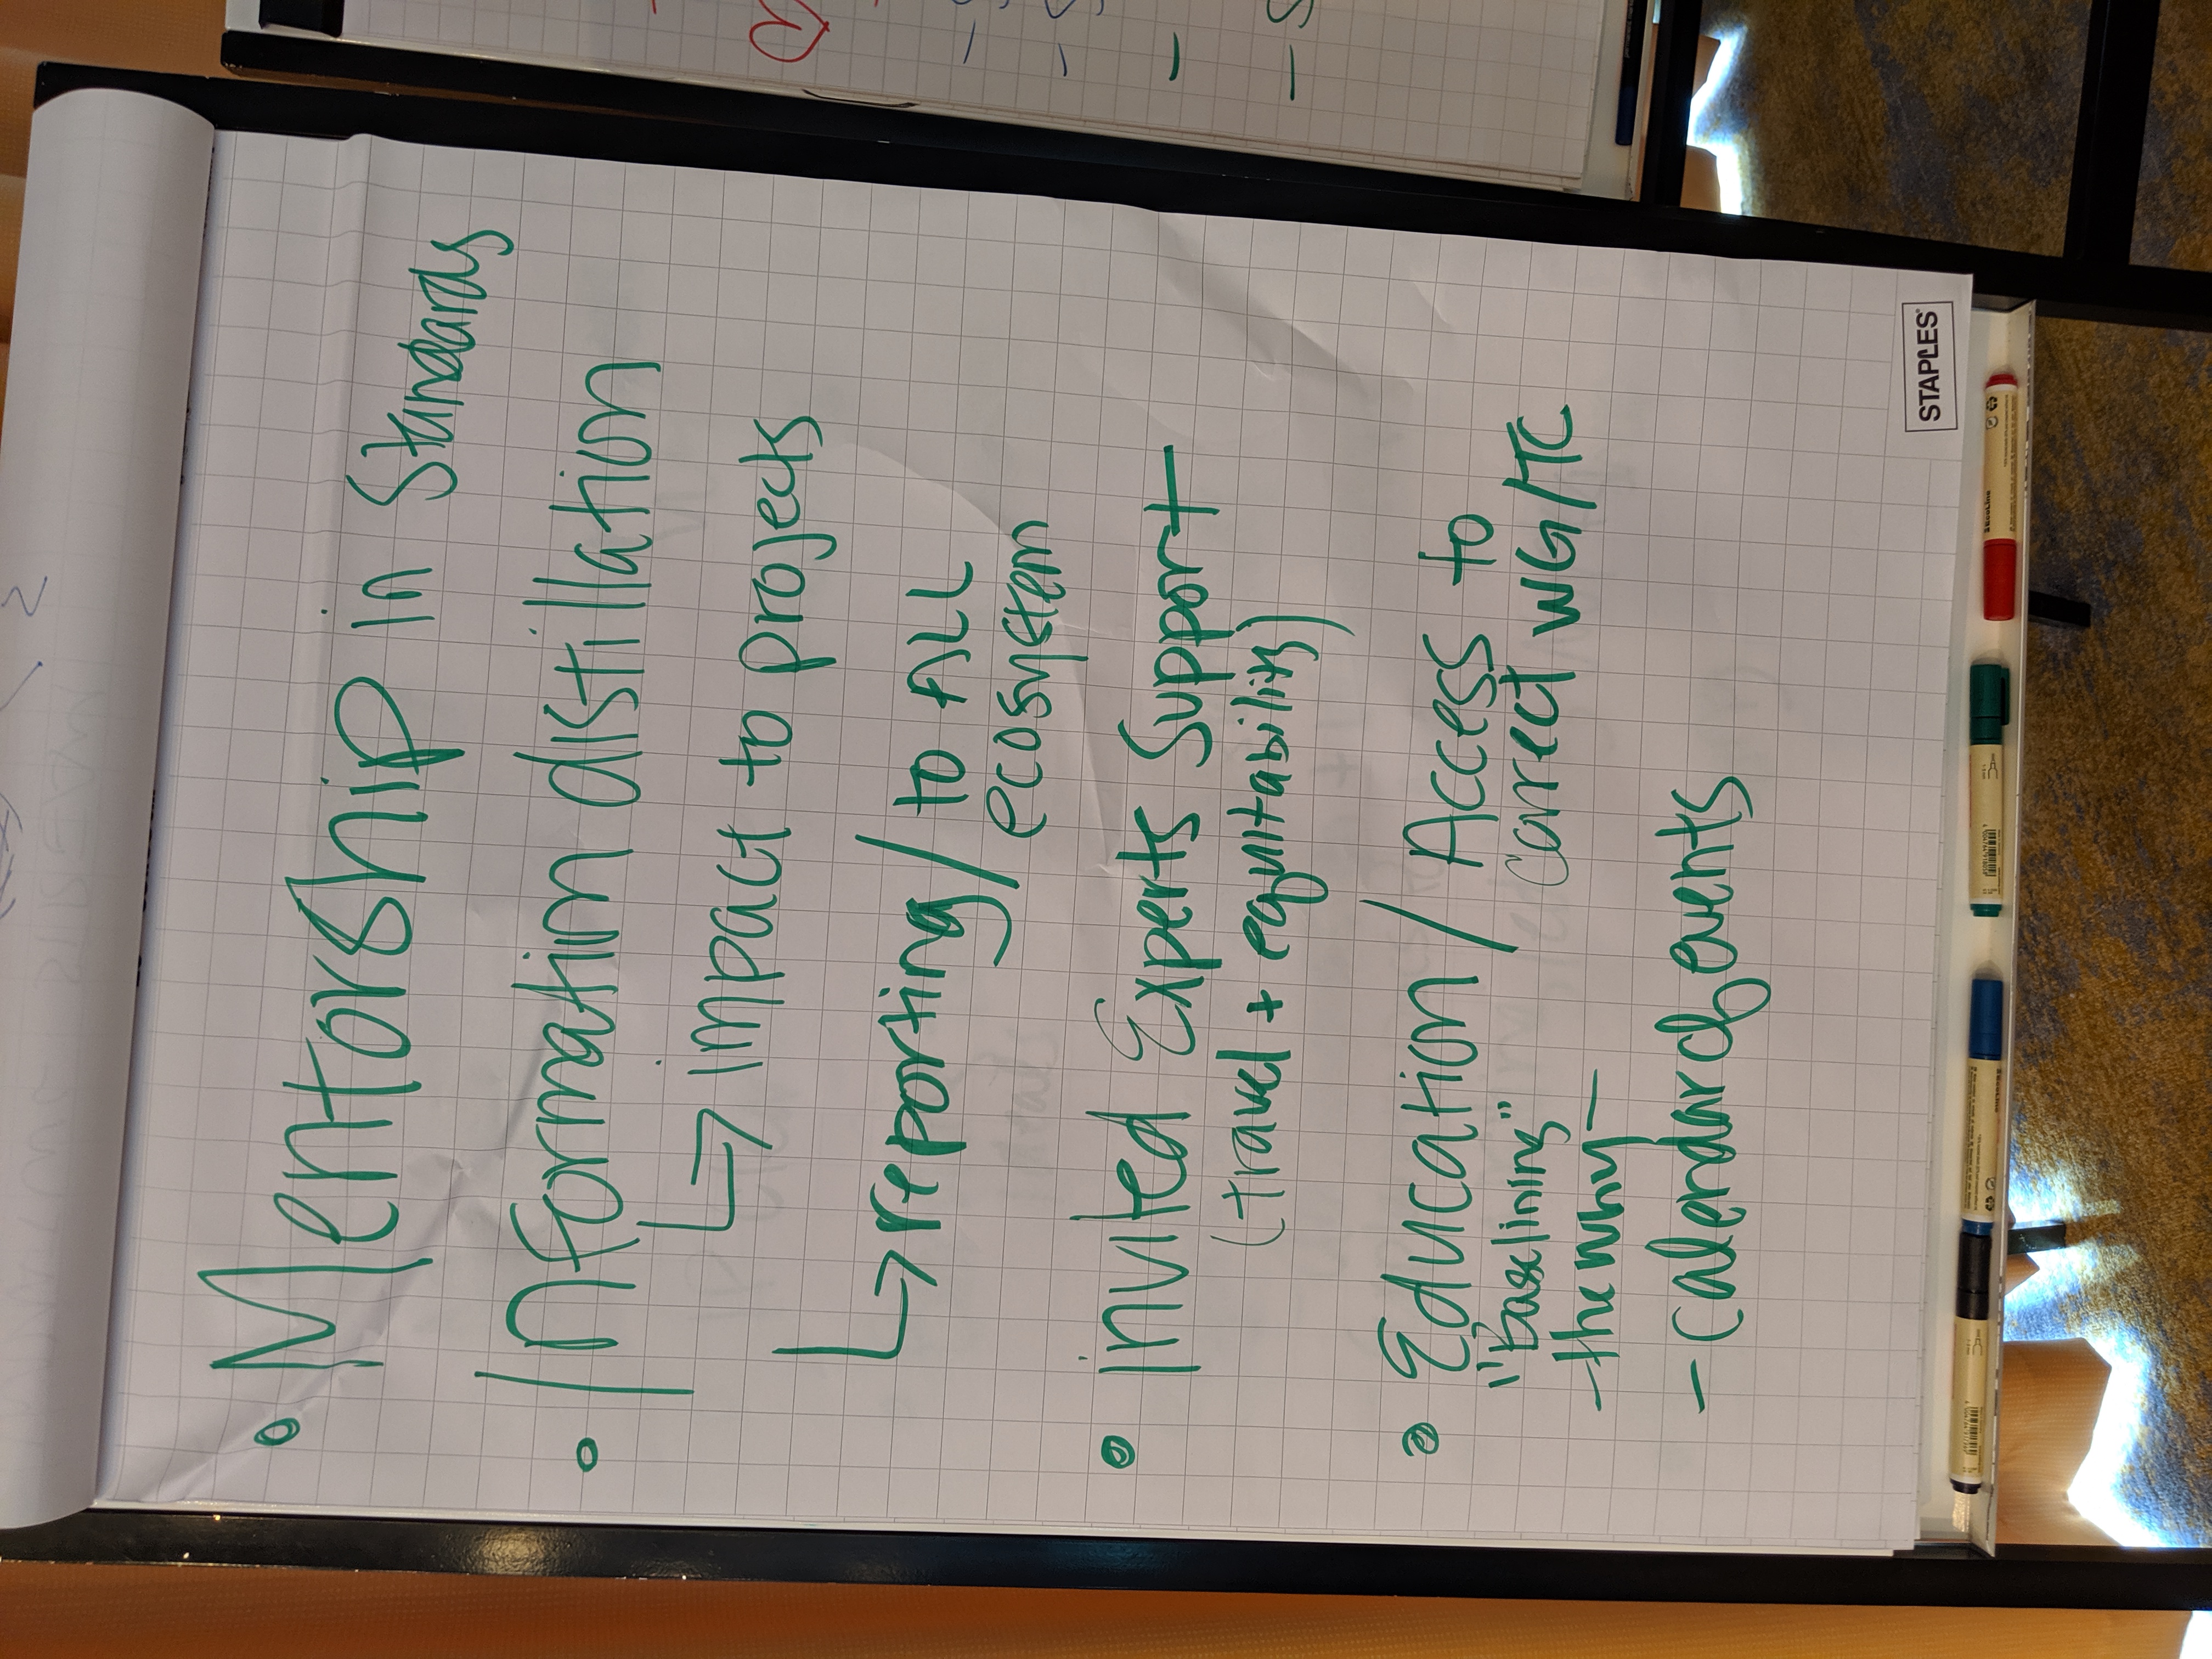 • Mentorship in Standards
• Information distillation
↳ impact to projects
↳ reporting / to ALL
ecosystem
• invited Experts Support
(travel + equitability)
• Education / Access to
"Baselining" correct WG/TC
- the why -
- calendar of events
STAPLES
EcoLine